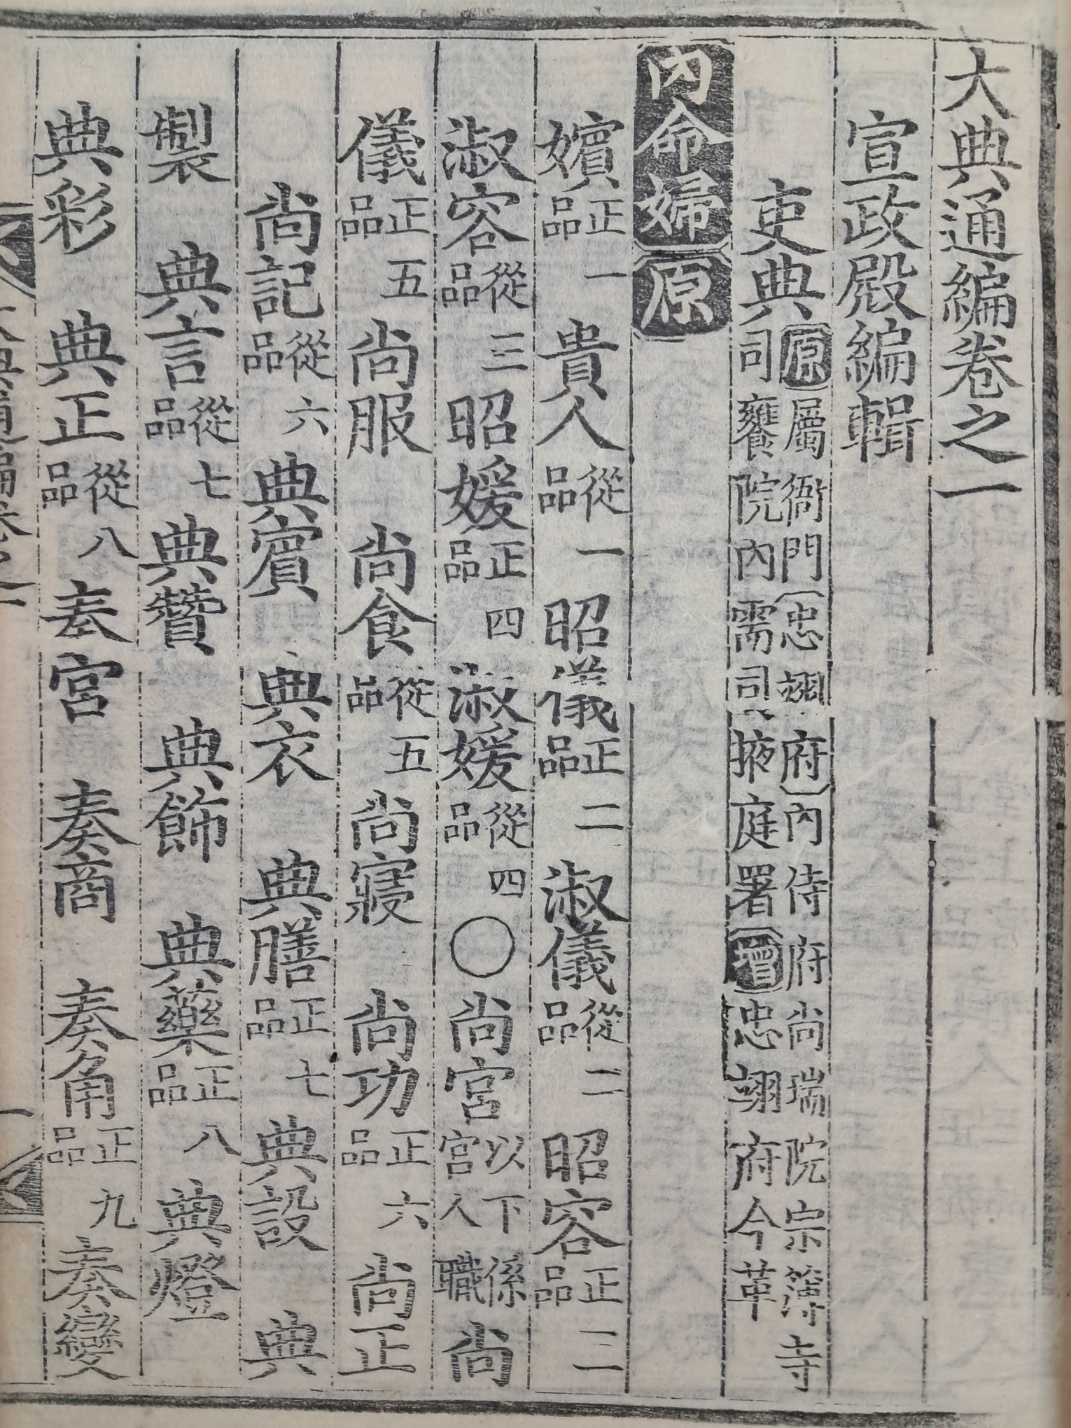 大典通編卷之一
宣政殿編輯
吏典原屬衙門(忠翊府)內侍府尚瑞院宗簿寺司饔院內需司掖庭署增忠翊府今革
內命婦原
嬪正一品 貴人從一品 昭儀正二品 淑儀從二品 昭容正三品
淑容從三品 昭媛正四品 淑媛從四品 ○尚宮以下係宮人職 尚
儀正五品 尚服 尚食從五品 尚寢 尚功正六品 尚正
尚記從六品 典賓 典衣 典膳正七品 典設 典
製 典言從七品 典贊 典飾 典藥正八品 典燈
典彩 典正從八品 奏宮 奏商 奏角正九品 奏變
大典通編卷之一 一